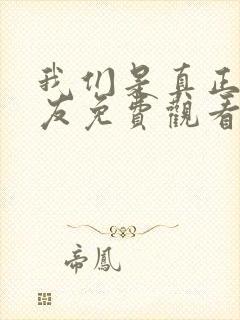 我们是真正
友免費觀看
帝鳳